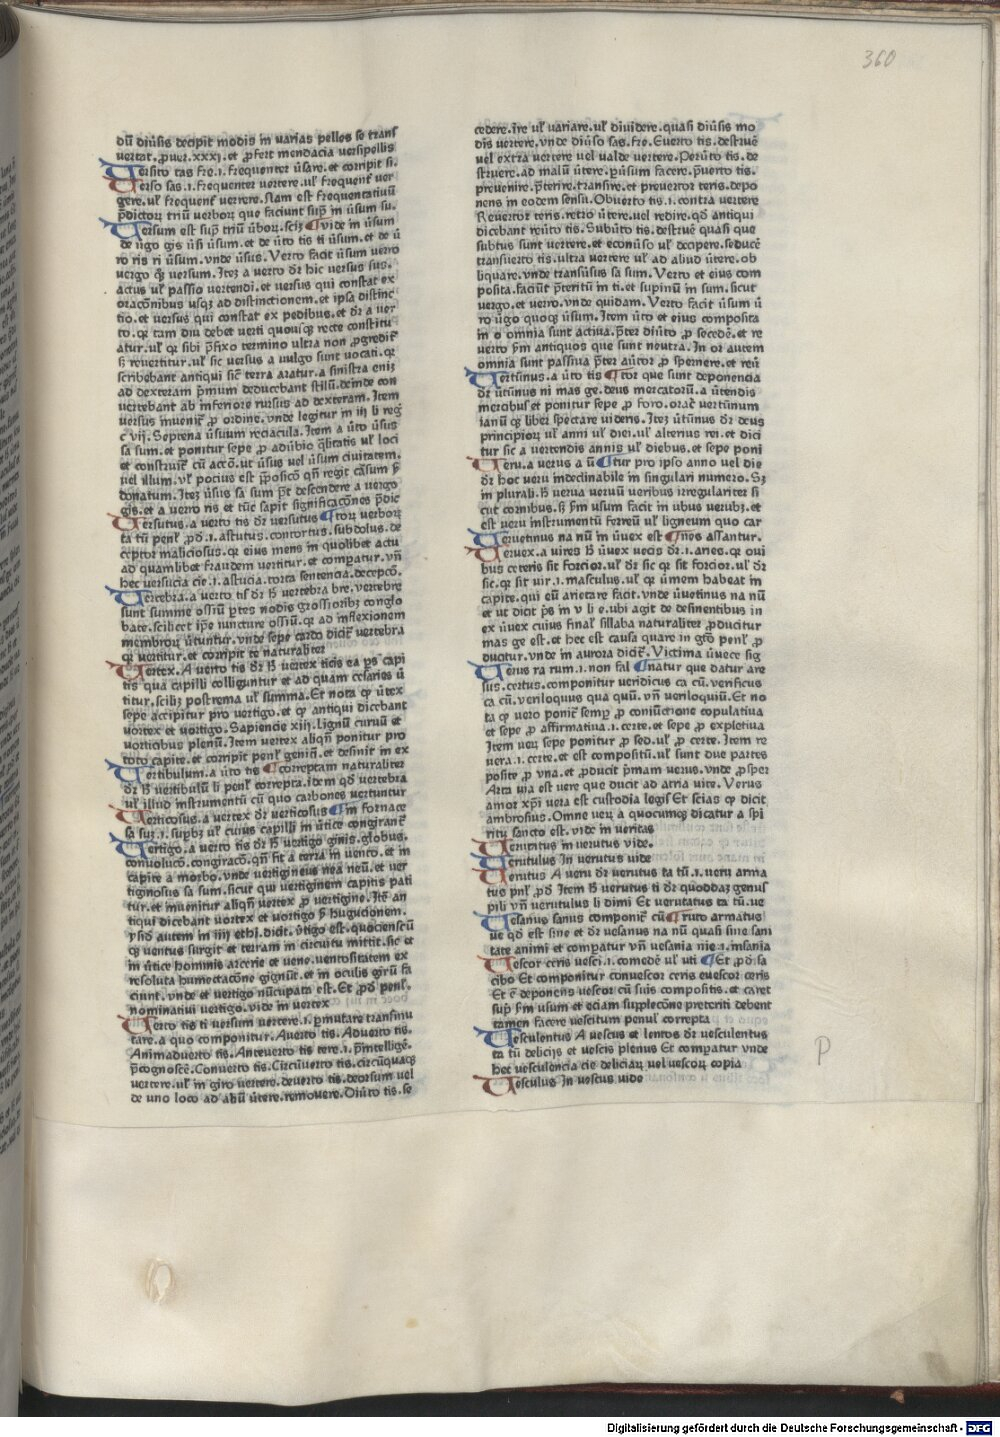 360
dũ diũsis decipit modis in varias pelles se transf
vertat. ꝓuer. xxxj. et ꝓfert mendacia versipellis
Uersito tas fre. i. frequenter ũsare. et corripit si.
Uerso sas. i. frequenter vertere. ul' frequent' ver
gere. ul' frequent' verrere. Nam est frequentatiuũ
p̄dictoꝝ triũ verboꝝ que faciunt sup̄ in ũsum su.
Uersum est sup̄ triũ ũboꝝ. scꝫ ¶ vide in ũsum
de ũgo gis ũsi ũsum. et de ũto tis ti ũsum. et de ũ
ro ris ri ũsum. vnde ũsus. Verto facit ũsum verro
vergo qꝫ versum. Iteꝫ a verto dr̄ hic versus sus.
actus ul' passio vertendi. et versus qui constat ex
oracõnibus usqꝫ ad distinctionem. et ipsa distinc
tio. et versus qui constat ex pedibus. et dr̄ a ver
to. qꝛ tam diu debet verti quousqꝫ recte constitu
atur. ul' qꝛ sibi p̄fixo termino ultra non ꝓgredit'
sꝫ reuertitur. ul' sic versus a vulgo sunt vocati. qꝛ
scribebant antiqui sic terra aratur. a sinistra enĩ
ad dexteram p̄mum deducebant stilũ. deinde con
vertebant ab inferiore rursus ad dexteram. Item
versus inuenit' ꝓ ordine. vnde legitur in iij li reg̃
c vij. Septena ũsuum reciacula. Item a ũto ũsus
sa sum. et ponitur sepe ꝓ adũbio q̃litatis ul' loci
et construit' cũ accõ. ut ũsus vel ũsum ciuitatem.
vel illum. ul' pocius est p̃posicõ qñ regit cãsum p̃
donatum. Iteꝫ ũsus sa sum p̃t descendere a vergo
gis. et a verro ris et tũc sapit significacões p̄dic
Uersutus. a verto tis dr̄ versutus ¶ toꝝ verboꝝ
ta tũ penl' ꝓd. i. astutus. contortus. subdolus. de
ceptor maliciosus. qꝛ eius mens in quolibet actu
ad quamlibet fraudem vertitur. et comparatur. vñ
hec versucia cie. i. astucia. torta sentencia. decepcõ.
Uertebra. a verto tis dr̄ hꝫ vertebra bre. vertebre
sunt summe ossiũ ꝑtes nodis grossioribꝫ conglo
bate. scilicet ip̄e iuncture ossiũ. qꝛ ad inflexionem
membroꝝ ũtuntur. vnde sepe cardo dicit' vertebra
qꝛ vertitur. et corripit te naturaliter
Uertex. A verto tis dr̄ hꝫ vertex ticis ea ꝑs capi
tis qua capilli colliguntur et ad quam cesaries ũ
titur. sciliꝫ postrema ul' summa. Et nota qꝫ ũtex
sepe accipitur pro vertigo. et qꝫ antiqui dicebant
vortex et vortigo. Sapiencie xiij. Lignũ curuũ et
vorticibus plenũ. Item vertex aliqñ ponitur pro
toto capite. et corripit penl' genitĩ. et definit in ex
Uertibulum. a ũto tis ¶ correptam naturaliter
dr̄ hꝫ vertibulũ li penl' correpta. idem qd̃ vertebra
ul' illud instrumentũ cũ quo carbones vertuntur
Uerticosus. a vertex dr̄ verticosus ¶ in fornace
sa suꝫ. i. supbꝫ ul' cuius capilli in ũtice congirant'
Uertigo. a verto tis dr̄ hꝫ vertigo ginis. globus.
conuolucõ. congiracõ. qñ fit a terra in uento. et in
capite a morbo. vnde vertigineus nea neũ. et ver
tiginosus sa sum. sicut qui vertiginem capitis pati
tur. et inuenitur aliqñ vertex ꝓ vertigine. Itẽ an
tiqui dicebant vortex et vortigo p̃ hugucionem.
ysid̃ autem in iiij ethĩ. dicit. ũtigo est. quociensc̃ũ
qꝫ ventus surgit et terram in circuitu mittit. sic et
in ũtice hominis arterie et vene. ventositatem ex
resoluta humectacõne gignũt. et in oculis girũ fa
ciunt. vnde et vertigo nũcupata est. Et ꝓd penl'.
nominatiui vertigo. vide in vertex
Uerto tis ti versum vertere. i. p̃mutare transmu
tare. a quo componitur. Auerto tis. Aduerto tis.
Animaduerto tis. Anteuerto tis tere. i. p̃intelligẽ.
p̃cognoscẽ. Conuerto tis. Circũuerto tis. circũquaqꝫ
vertere. ul' in giro vertere. deuerto tis. deorsum vel
de uno loco ad aliũ ũtere. remouere. Diũto tis. se
cedere. Ire ul' variare. ul' diuidere. quasi diũsis mo
dis vertere. vnde diũso sas. fre. Euerto tis. destruẽ
vel extra vertere vel valde vertere. Perũto tis. de
struere. ad malũ ũtere. ꝑũsum facere. p̃uerto tis.
preuenire. p̃terire. transire. et preuertor teris. depo
nens in eodem sensu. Obuerto tis. i. contra vertere
Reuertor teris. retro ũtere. vel redire. qd̃ antiqui
dicebant reũto tis. Subũto tis. destruẽ quasi que
subtus sunt vertere. et econũso ul' decipere. seducẽ
transuerto tis. ultra vertere ul' ad aliud ũtere. ob
liquare. vnde transũsus sa sum. Verto et eius com
posita. faciũt p̃teritũ in ti. et supinũ in sum. sicut
vergo. et verro. vnde quidam. Verto facit ũsum ũ
ro ũgo quoqꝫ ũsum. Item ũto et eius composita
in o omnia sunt actiua. p̃ter diũto ꝓ secedẽ. et re
uerto s̃m antiquos que sunt neutra. In or autem
omnia sunt passiua p̃ter aũtor ꝓ spernere. et reũ
Uertũnus. a ũto tis ¶ tor que sunt deponencia
dr̄ ũtũnus ni mas ge. deus mercatorũ. a ũtendis
mercibus et ponitur sepe ꝓ foro. orac̃ vertũnum
ianũ qꝫ liber spectare videris. Iteꝫ ũtũnus dr̄ deus
principioꝝ ul' anni ul' diei. ul' alterius rei. et dici
tur sic a vertendis annis ul' diebus. et sepe poni
Ueru. a verus a ũ ¶ tur pro ipso anno vel die
dr̄ hoc veru indeclinabile in singulari numero. Sꝫ
in plurali. hꝫ verua veruũ veribus irregulariter si
cut cornibus. sꝫ s̃m usum facit in ubus verubꝫ. et
est veru instrumentũ ferreũ ul' ligneum quo car
Ueruetinus na nũ in ũuex est ¶ nes assantur.
Ueruex. a vires hꝫ ũuex uecis dr̄. i. aries. qꝛ oui
bus ceteris sit forcior. ul' dr̄ sic qꝛ sit forcior. ul' dr̄
sic. qꝛ sit vir. i. masculus. ul' qꝛ ũmem habeat in
capite. qui eũ arietare facit. vnde ũuetinus na nũ
et ut dicit p̃s in v li e. ubi agit de desinentibus in
ex ũuex cuius final' sillaba naturaliter ꝓducitur
mas ge est. et hec est causa quare in gt̃o penl' ꝓ
ducitur. vnde in aurora dicit'. Victima ũuece sig
Uerus ra rum. i. non fal ¶ natur que datur are
sus. certus. componitur veridicus ca cũ. verificus
ca cũ. veriloquus qua quũ. vñ veriloquiũ. Et no
ta qꝫ vero ponit' semꝑ ꝓ coniũctione copulatiua
et sepe ꝓ affirmatiua. i. certe. et sepe ꝓ expletiua
Item veꝝ sepe ponitur ꝓ sed. ul' ꝓ certe. Item re
vera. i. certe. et est compositũ. ul' sunt due partes
posite ꝓ vna. et ꝓducit p̃mam verus. vnde ꝓsper
Arta via est vere que ducit ad atria vite. Verus
amor xp̃i vera est custodia legis Et scias qꝫ dicit
ambrosius. Omne veꝝ a quocumqꝫ dicatur a spi
ritu sancto est. vide in veritas
Ueruitus in verutus vide.
Uerutulus In verutus vide
Uerutus A veru dr̄ verutus ta tũ. i. veru arma
tus pnl' ꝓd Item hꝫ verutus ti dr̄ quoddaꝫ genus
pili vñ verutulus li dimi Et verutatus ta tũ. ue
Uesanus sanus componit' cũ ¶ ruto armatus
ue qd̃ est sine et dr̄ vesanus na nũ quasi sine sani
tate animi et comparatur vñ vesania nie. i. insania
Uescor ceris vesci. i. comedẽ ul' uti ¶ Et ꝓd: sa
cibo Et componitur conuescor ceris euescor ceris
Et ẽ deponens vescor cũ suis compositis. et caret
sup̃ s̃m usum et eciam supplecõne preteriti debent
tamen facere vescitum penul' correpta
Uesculentus A vescus et lentos dr̄ vesculentus
ta tũ delicijs et vescis plenus Et comparatur vnde
hec vesculencia cie deliciaꝝ vel vescoꝝ copia
Uesculus In vescus vide
P
Digitalisierung gefördert durch die Deutsche Forschungsgemeinschaft - DFG